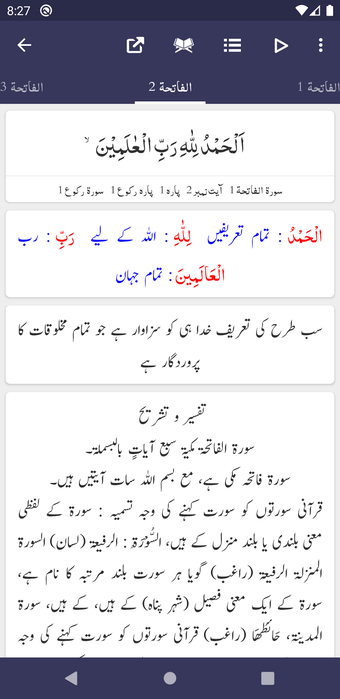 8:27
الفاتحة 1
الفاتحة 2
الفاتحة 3
اَلْحَمْدُ لِلّٰهِ رَبِّ الْعٰلَمِيْنَ ۙ
سورۃ الفاتحۃ 1 آیت نمبر 2 پارہ 1 پارہ رکوع 1 سورۃ رکوع 1
الْحَمْدُ : تمام تعریفیں لِلّٰہِ : اللہ کے لیے رَبِّ : رب
الْعَالَمِينَ : تمام جہان
سب طرح کی تعریف خدا ہی کو سزاوار ہے جو تمام مخلوقات کا
پروردگار ہے
تفسیر و تشریح
سورۃ الفاتحۃ مکیۃ سبع آیاتٍ بالبسملۃ۔
سورۃ فاتحہ مکی ہے، مع بسم اللہ سات آیتیں ہیں۔
قرآنی سورتوں کو سورت کہنے کی وجہ تسمیہ : سورۃ کے لفظی
معنی بلندی یا بلند منزل کے ہیں، السُّوْرَۃ : الرفیعۃ (لسان) السورۃ
المنزلۃ الرفیعۃ (راغب) گویا ہر سورت بلند مرتبہ کا نام ہے،
سورۃ کے ایک معنی فصیل (شہر پناہ) کے ہیں، کے ہیں، سورۃ
المدینۃ، حَائطُھَا (راغب) قرآنی سورتوں کو سورت کہنے کی وجہ